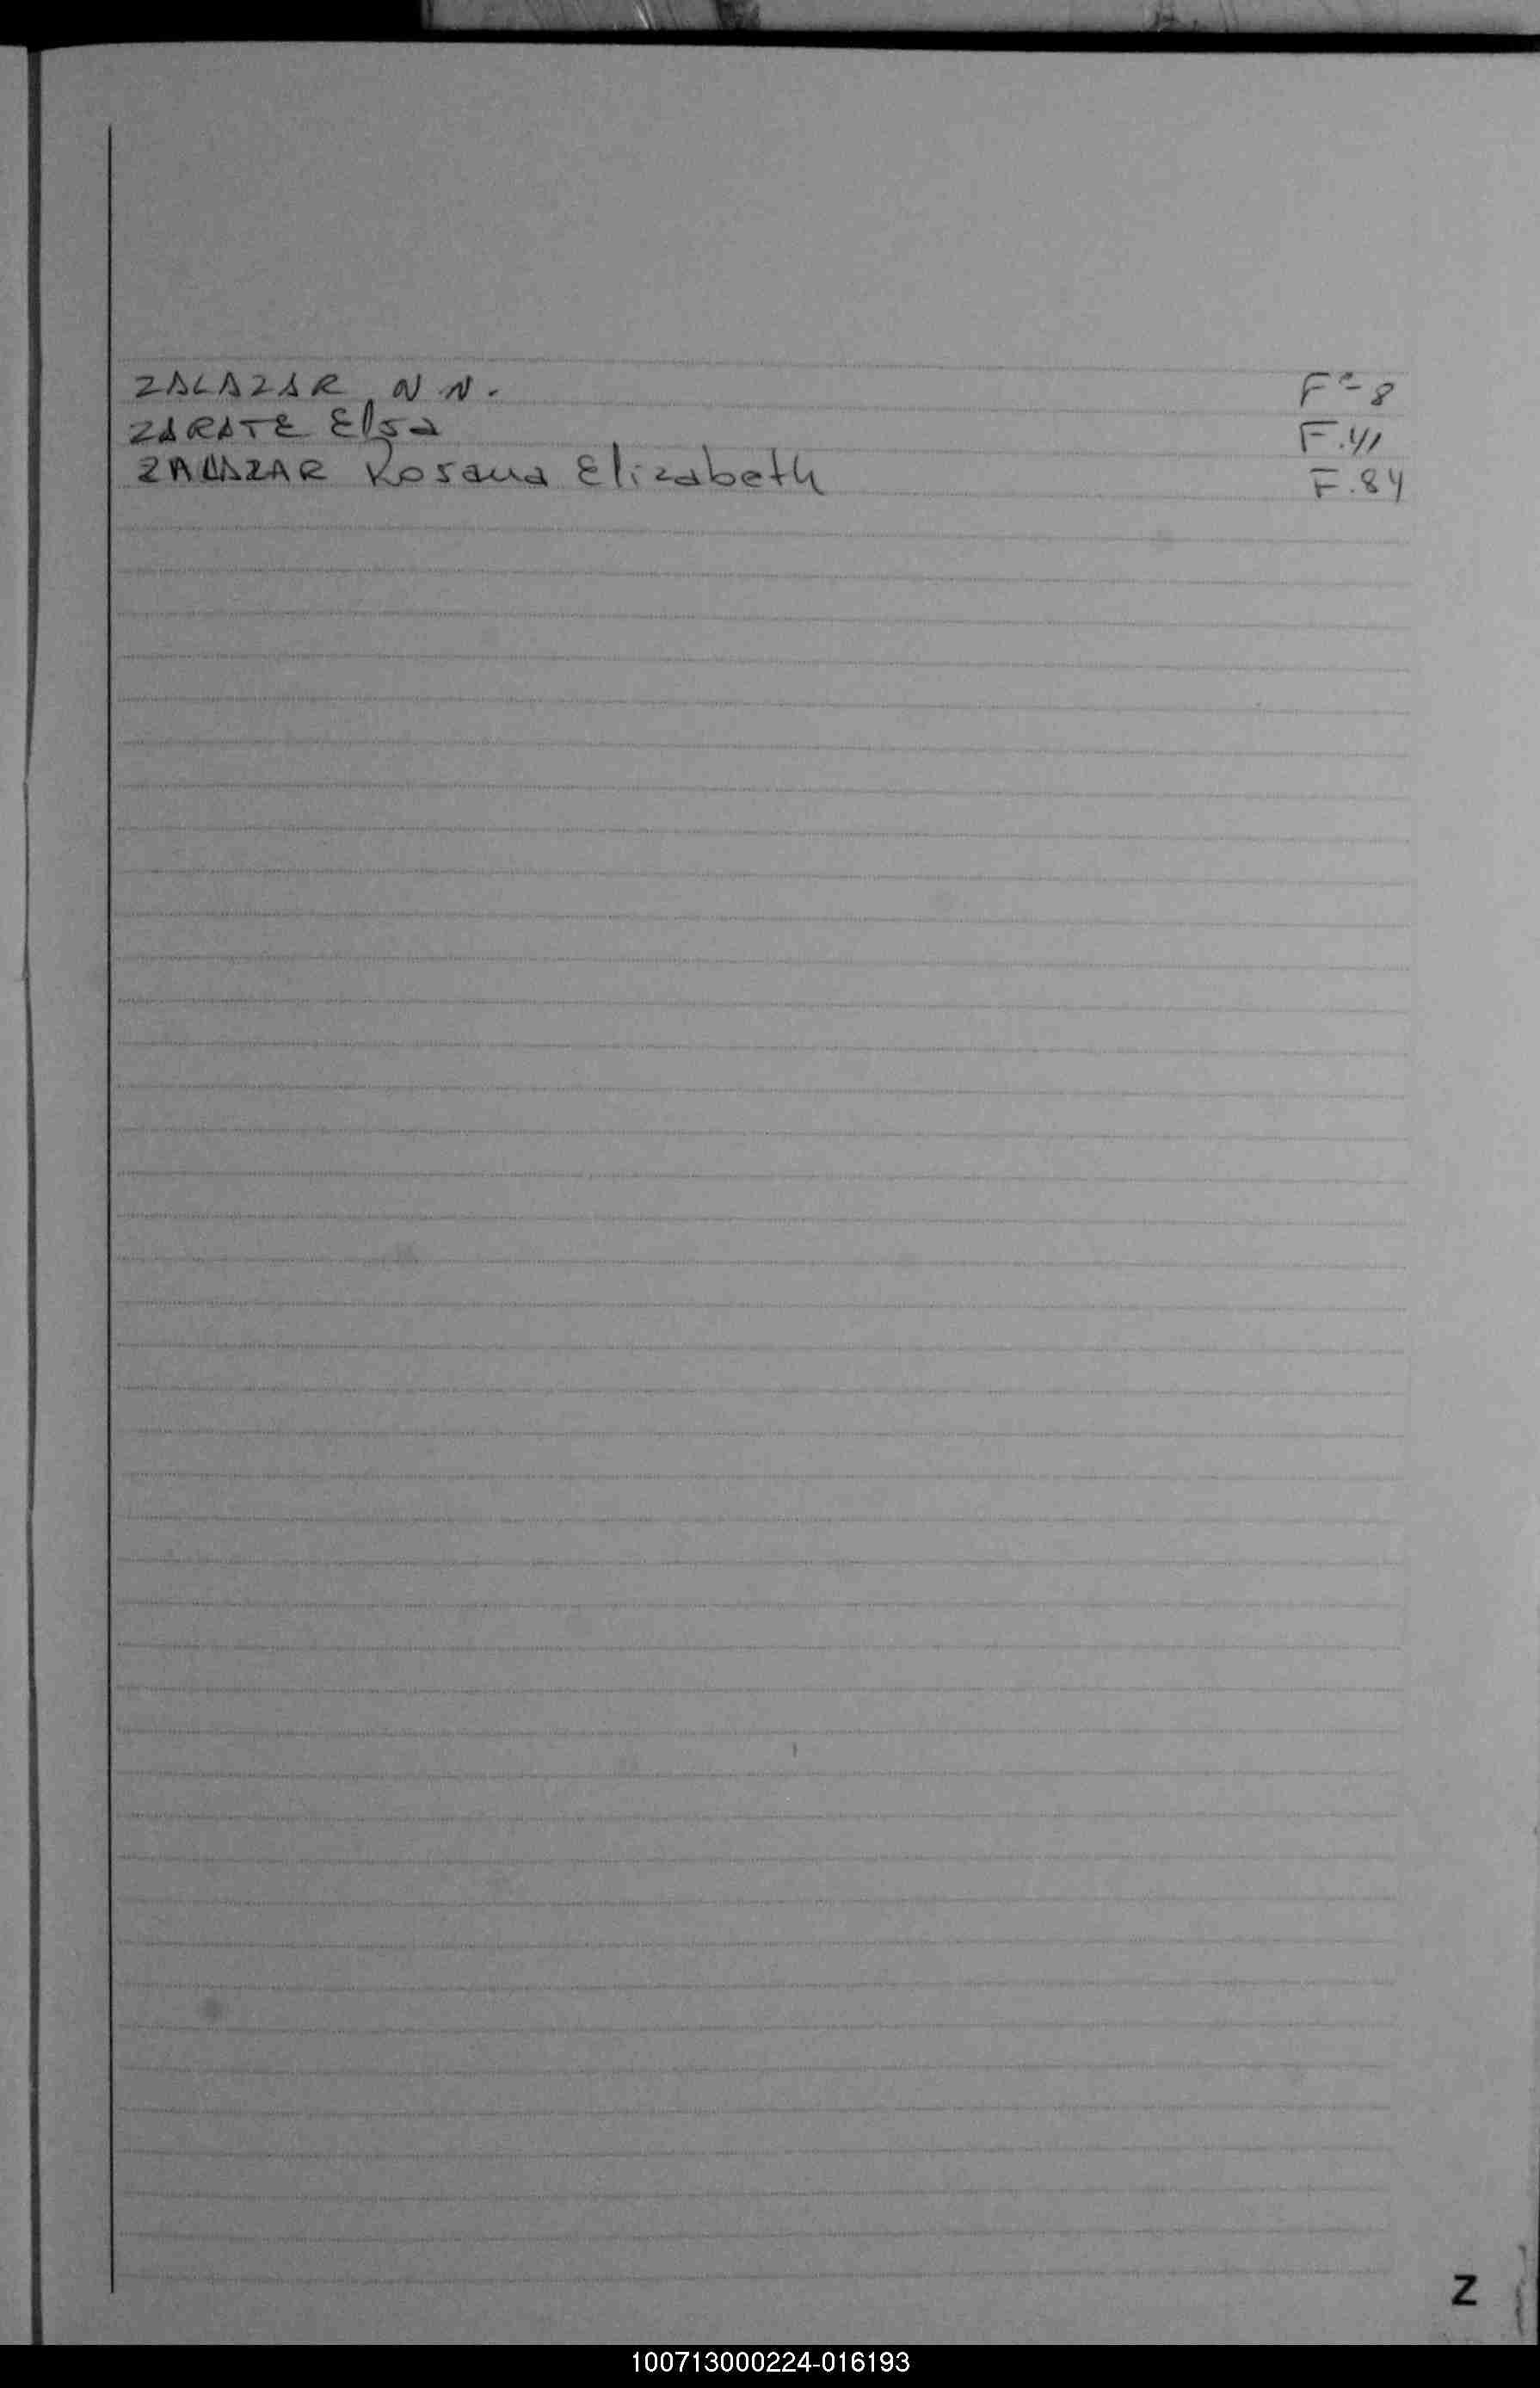 ZALAZAR N N. Fº 8
ZARATE Elsa F. 41
ZALAZAR Rosana Elizabeth F. 84
Z
100713000224-016193